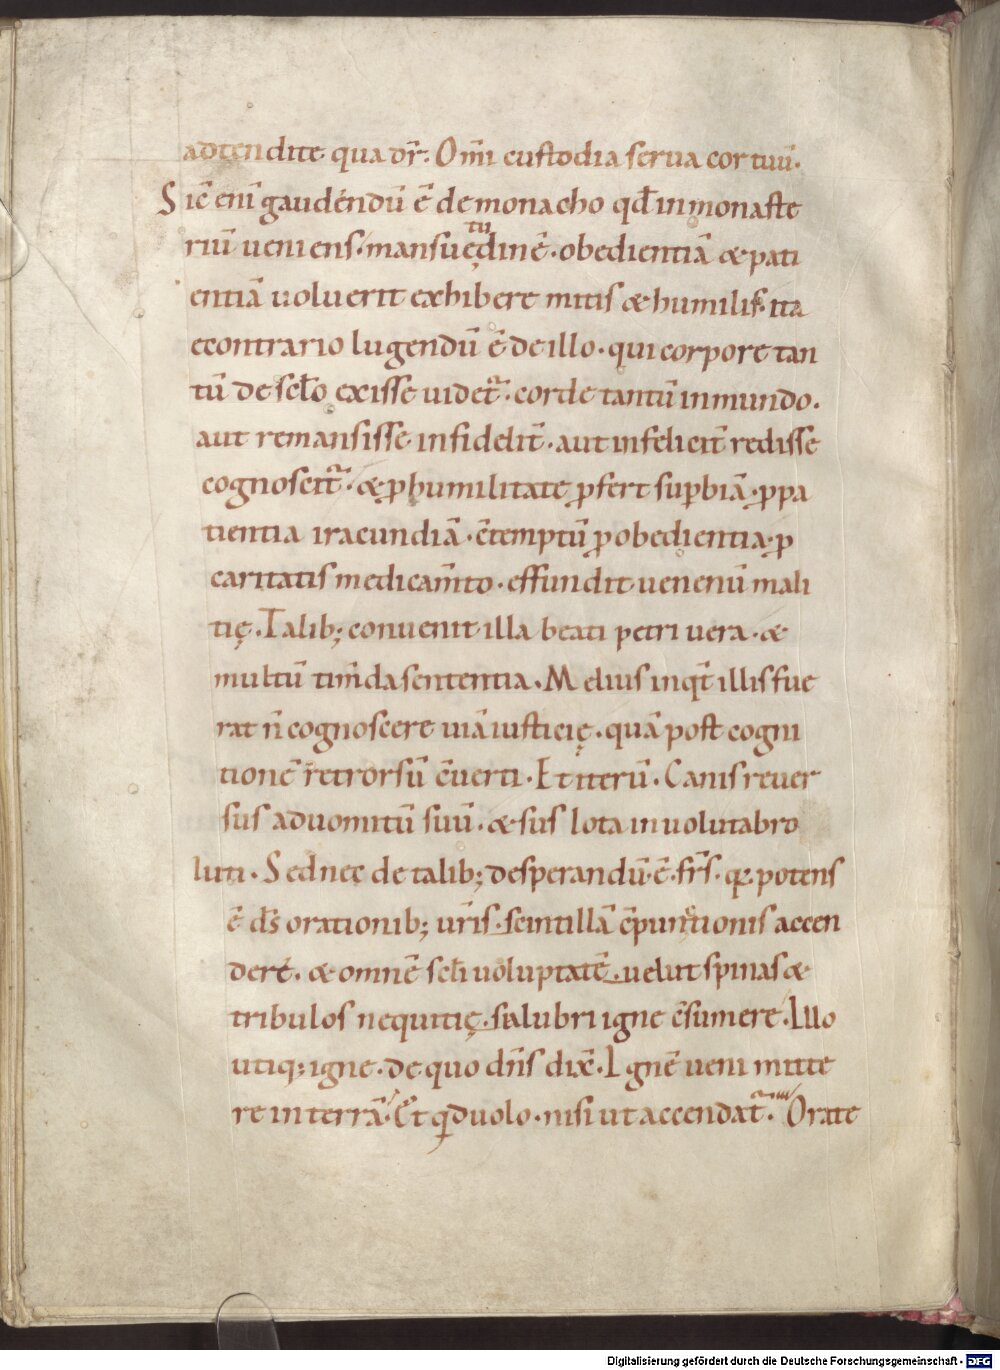 adtendite qua dr̄. Om̄i custodia serua cor tuū.
Sic̄ enī gaudéndū ē de monacho qd̄ in monaste
riū ueniens. mansuetudinē. obedientiā & pati
entiā uoluerit exhibere mitis & humilis. ita
econtrario lugendū ē de illo. qui corpore tan
tū de sc̄lo exisse uidet᷑. corde tantū in mundo.
aut remansisse infidelit̄. aut infelicit̄ redisse
cognoscit᷑. & ꝓ humilitate ꝓfert suꝑbiā. ꝓ pa
tientia iracundiā. c̄temptū ꝓ obedientia. ꝓ
caritatis medicam̄to. effundit uenenū mali
tię. Talib; conuenit illa beati petri uera. &
multū tim̄da sententia. Melius inq̄t illis fue
rat n̄ cognoscere uiā iusticię. quā post cogni
tionē retrorsū c̄uerti. Et iterū. Canis reuer
sus ad uomitū suū. & sus lota in uolutabro
luti. Sed nec de talib; desperandū ē. fr̄s. qꝛ potens
ē ds̄ orationib; ur̄is. scintillā c̄punctionis accen
dere. & omnē sc̄li uoluptatē. uelut spinas &
tribulos nequitię. salubri igne c̄sumere. Illo
utiq; igne. de quo dn̄s dix̄. Ignē ueni mitte
re in terrā. Et qd uolo. nisi ut accendat᷑. Orate
Digitalisierung gefördert durch die Deutsche Forschungsgemeinschaft - DFG